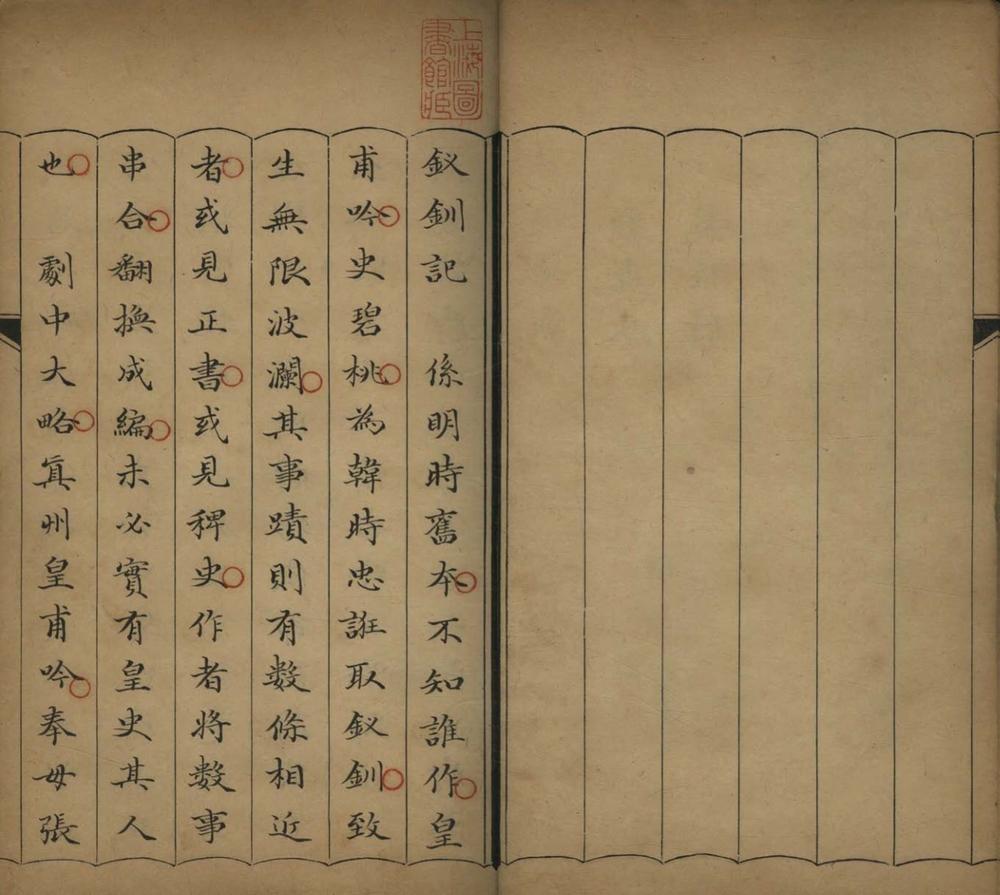 上海圖
書館藏
釵釧記　係明時舊本不知誰作皇
甫吟史碧桃為韓時忠誑取釵釧致
生無限波瀾其事蹟則有数條相近
者或見正書或見稗史作者將数事
串合翻換成編未必實有皇史其人
也　劇中大略真州皇甫吟奉母張